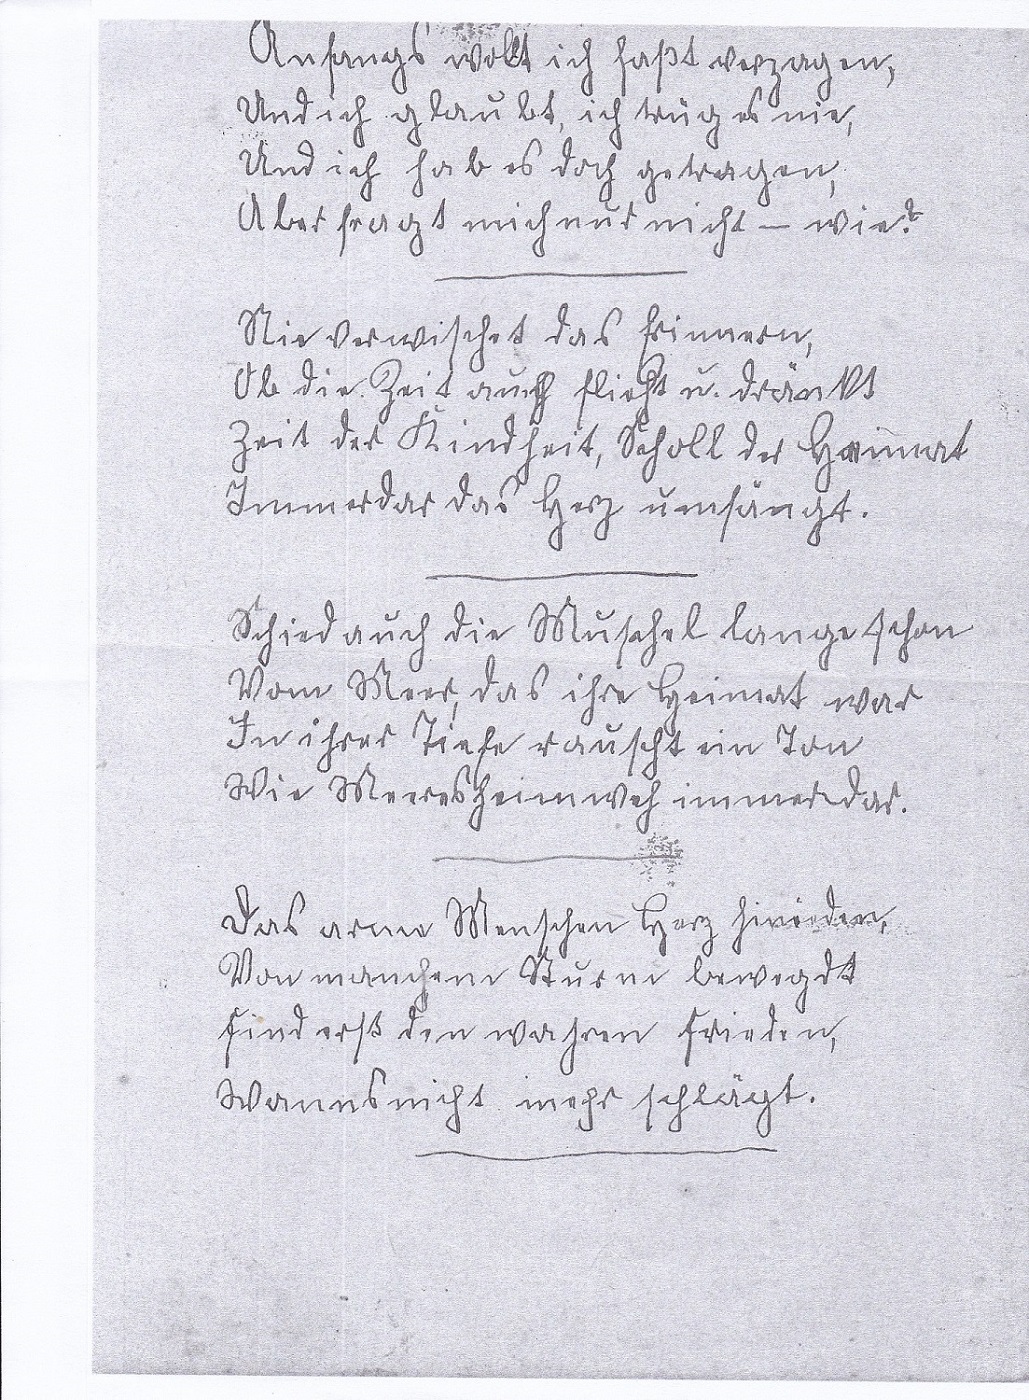 Anfangs wollt ich faßt verzagen,
Und ich glaubt, ich trüg es nie,
Und ich hab es doch getragen,
Aber fragt mich nur nicht – wie?
Nie verwischet das Erinnern,
Ob die Zeit auch flieht u. drängt
Zeit der Kindheit, Scholl der Heimat
Immerdar das Herz umfängt.
Schied auch die Muschel lange schon
Vom Meer, das ihre Heimat war
In ihrer Tiefe rauscht ein Ton
Wie Meeresheimweh immerdar.
Das arme Menschen Herz hinieden,
Von manchem Sturm bewegdt
Find erst den wahren Frieden,
Wanns nicht mehr schlägt.